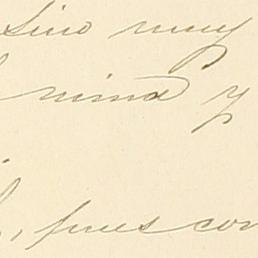 sino muy
mina y
, pues con